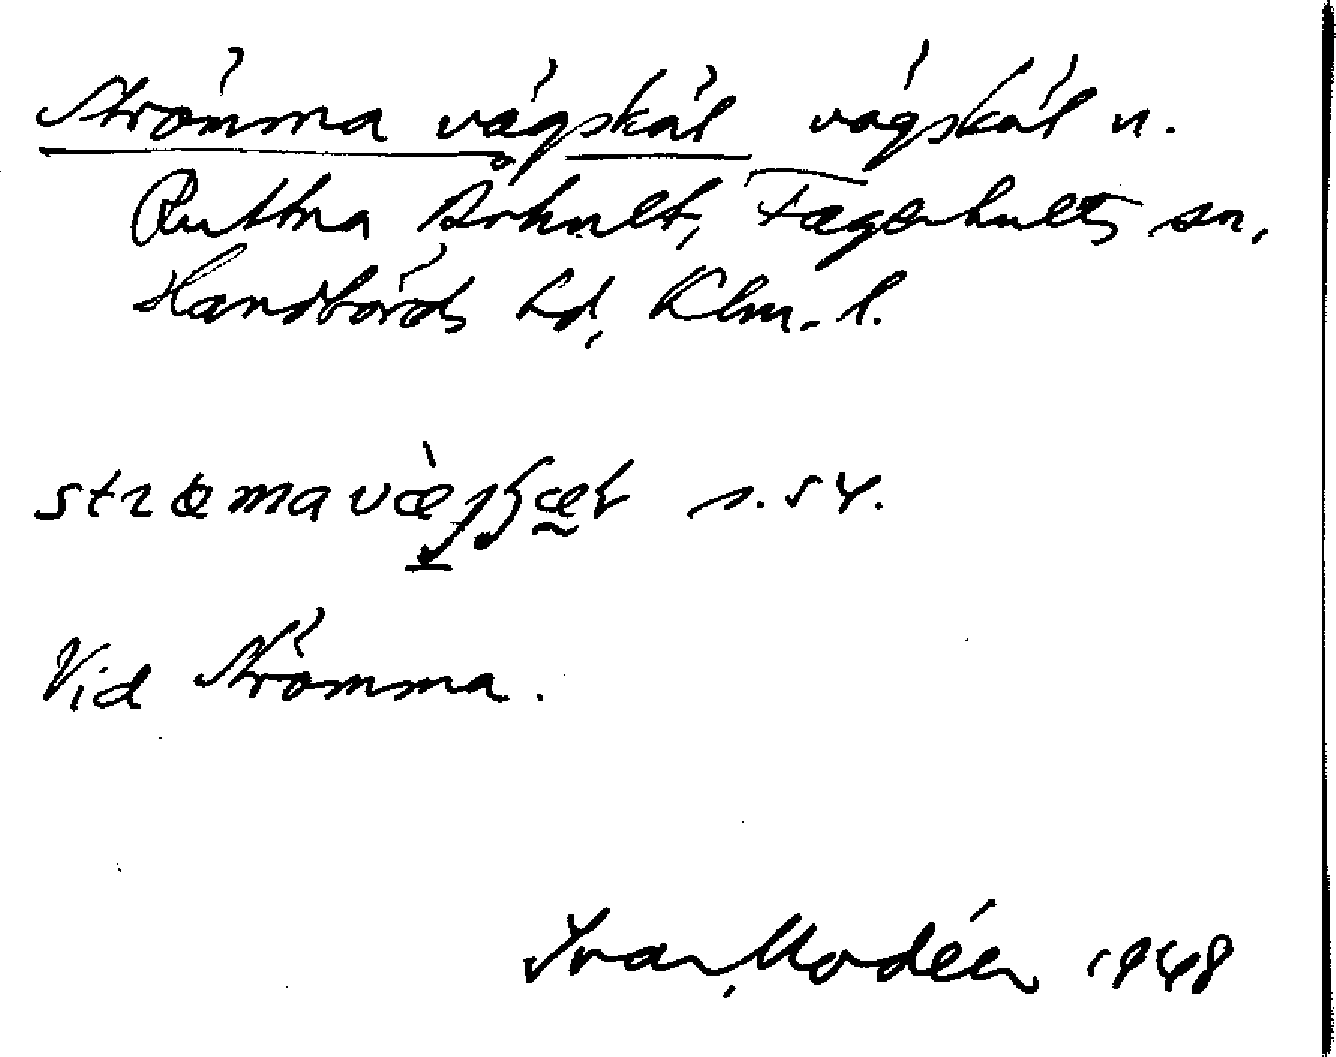 Strömma vägskäl vägskäl n.
Ruttna Århult, Fagerhults sn,
Handbörds hd, Klm. l.
s. 54.
Vid Strömma.
Ivar Modéer 1948